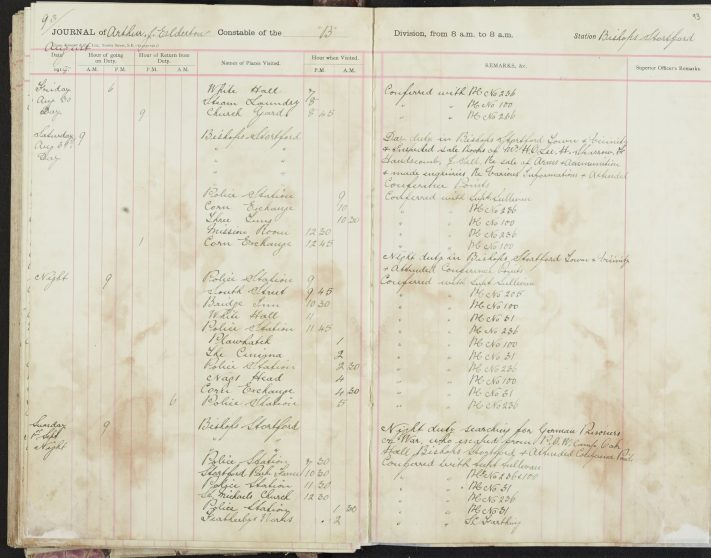 93
JOURNAL of Arthur J. Elderton Constable of the "B"
August
Date Hour of going on Duty. Hour of Return from Duty. Names of Places Visited. Hour when Visited.
191 A.M. P.M. A.M. P.M. P.M. A.M.
Friday 6 White Hall 7
Aug 30 Steam Laundry 8
Day 9 Church Yard 8 45
Saturday 9 Bishops Stortford
Aug 31 " "
Day " "
" "
Police Station 9
Corn Exchange 10
10 30
Mission Room 12 30
1 Corn Exchange 12 45
Night 9 Police Station 9
South Street 9 45
Bridge Inn 10 30
White Hall 11
Police Station 11 45
Plawhatch 1
The Cinema 2
Police Station 2 30
Nags Head 4
Corn Exchange 4 30
6 Police Station 5
Sunday 9 Bishops Stortford
1st Sept "
Night
Police Station 7 30
Stortford Park Farm 10 30
Police Station 11 30
St Michaels Church 12 30
Police Station 1 30
Works 2
Division, from 8 a.m. to 8 a.m. Station Bishops Stortford
13
REMARKS, &c. Superior Officer's Remarks.
Conferred with PC No 236
" " PC No 100
" " PC No 266
Day duty in Bishops Stortford Town & Vicinity
& Inspected Sale Books of Mr H.
Handscomb, J. Re sale of Arms & ammunition
& made enquiries Re various Informations & Attended
Conference Points
Conferred with Supt Sullivan
" " PC No 236
" " PC No 100
" " PC No 236
" " PC No 100
Night duty in Bishops Stortford Town & Vicinity
& Attended Conference Points
Conferred with Supt Sullivan
" " PC No 205
" " PC No 100
" " PC No 31
" " PC No 236
" " PC No 100
" " PC No 31
" " PC No 236
" " PC No 100
" " PC No 31
" " PC No 236
Night duty searching for German Prisoners
of War, who escaped from P.O.W. Camp Oak
Hall, Bishops Stortford & Attended Conference Points
Conferred with Supt Sullivan
" " PC No 236 & 100
" " PC No 31
" " PC No 236
" " PC No 31
" "